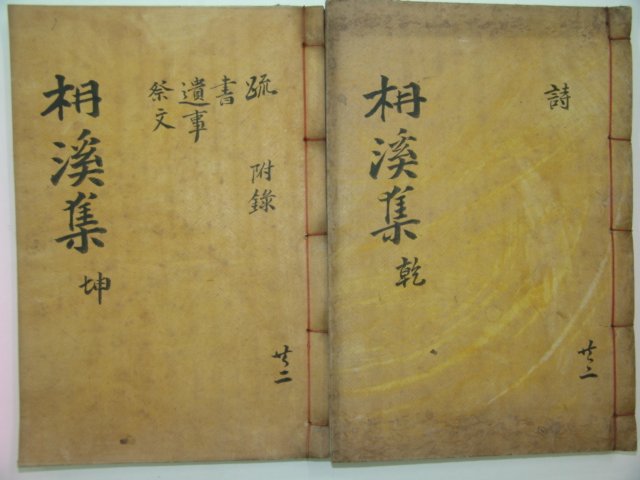 詩
枏溪集 乾
共二
疏
書
遺事
祭文
附錄
枏溪集 坤
共二